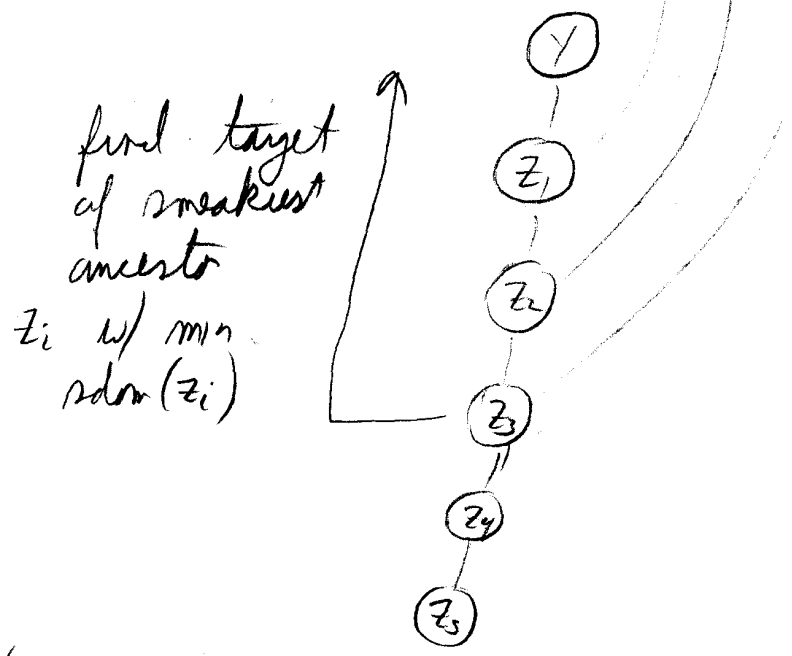 Y
find target
of sneakiest
ancestor
Z_i w/ min
sdom(Z_i)
Z₁
Z₂
Z₃
Z₄
Z₅